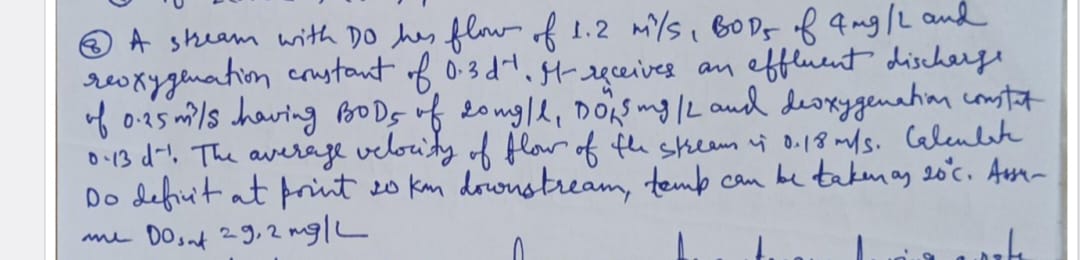 ⑧ A stream with DO has flow of 1.2 m³/s, BOD5 of 4mg/L and
reoxygenation constant of 0.3 d⁻¹. It receives an effluent discharge
of 0.25 m³/s having BOD5 of 20mg/l, DO 5 mg/L and deoxygenation constat
0.13 d⁻¹. The average velocity of flow of the stream is 0.18 m/s. Calculate
DO deficit at point 20 km downstream, temp can be taken as 20°c. Assu-
me DOsat = 9.2 mg/L